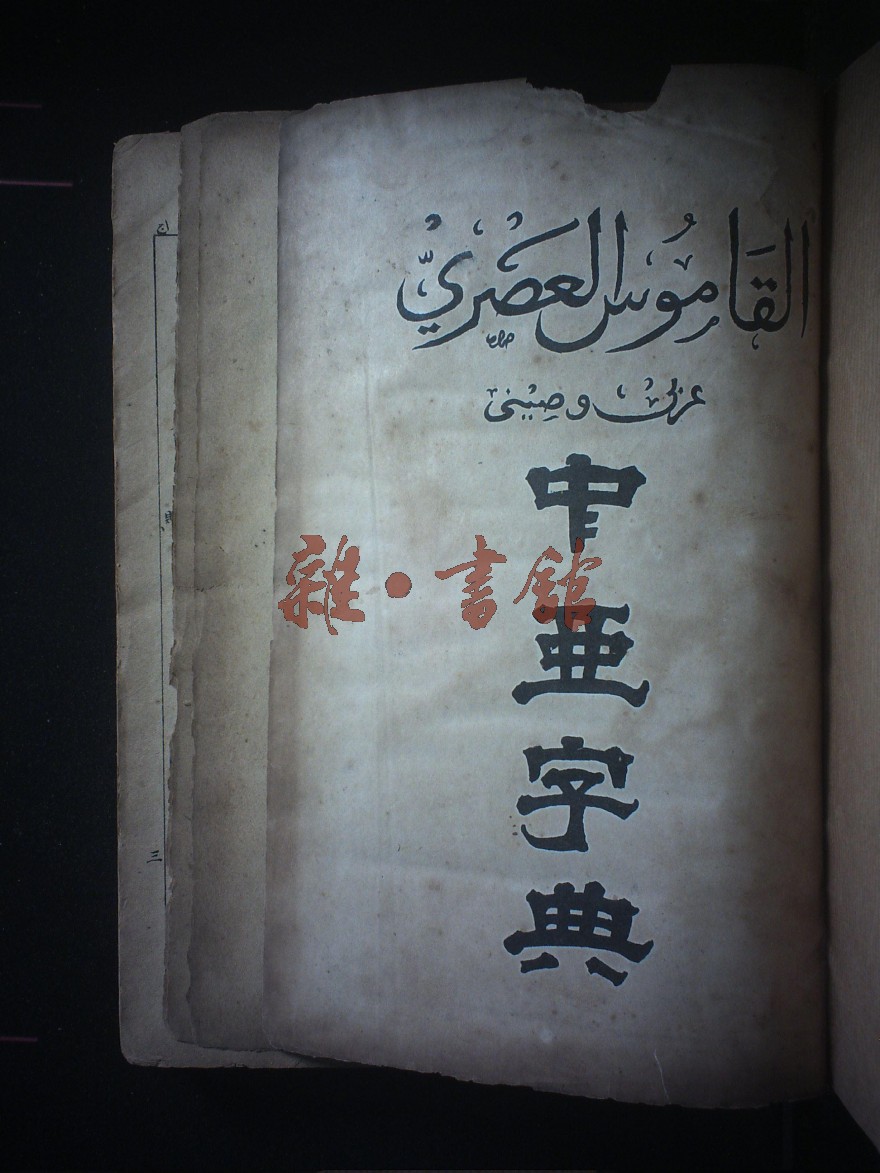 القَامُوسُ العَصْرِيّ
عربى وصينى
中亞字典
雜·書館